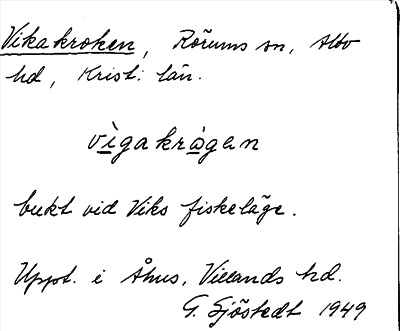 Vikakroken, Rörums sn, Albo
hd, Krist. län.
vìgakrògen
bukt vid Viks fiskeläge.
Uppt. i Åhus, Villands hd.
G. Sjöstedt 1949